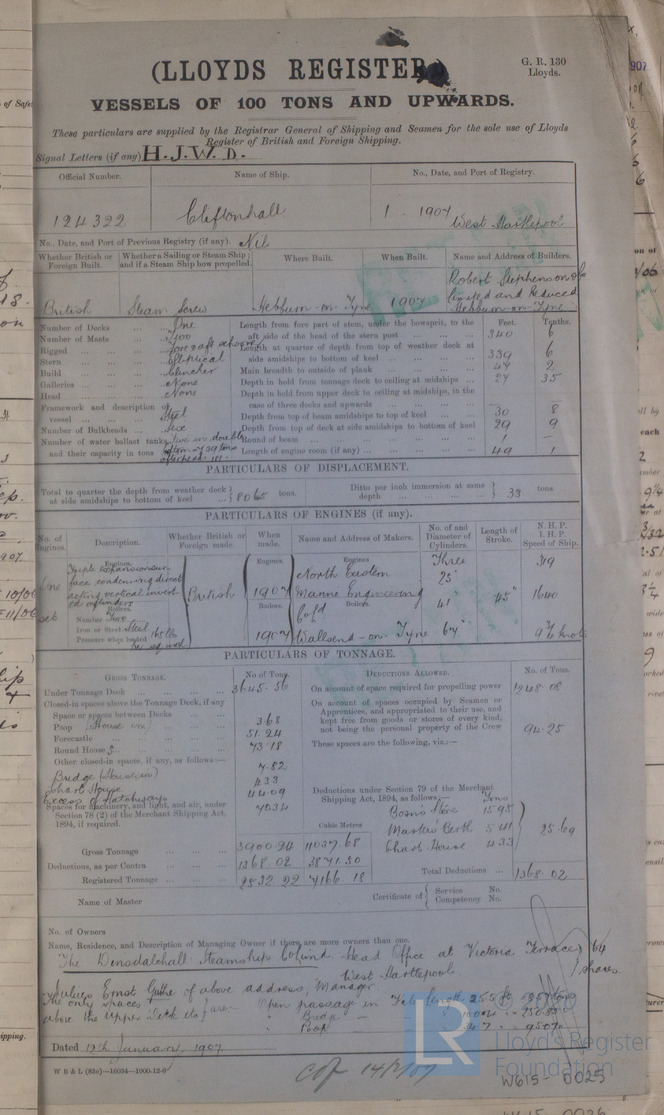 (LLOYDS REGISTER)
G. R. 130
Lloyds.
VESSELS OF 100 TONS AND UPWARDS.
These particulars are supplied by the Registrar General of Shipping and Seamen for the sole use of Lloyds
Register of British and Foreign Shipping.
Signal Letters (if any) H.J.W.D.
Official Number. Name of Ship. No., Date, and Port of Registry.
124322 Cliftonhall 1 1907 West Hartlepool
No., Date, and Port of Previous Registry (if any). Nil
Whether British or Foreign Built. Whether a Sailing or Steam Ship; and if a Steam Ship how propelled. Where Built. When Built. Name and Address of Builders.
British Steam Screw Hebburn-on-Tyne 1907 Robert Stephenson & Co Limited and Reduced Hebburn-on-Tyne
Feet. Tenths.
Number of Decks One
Number of Masts Two
Rigged fore & aft schooner
Stern Elliptical
Build Clencher
Galleries None
Head None
Framework and description of vessel Steel
Number of Bulkheads Six
Number of water ballast tanks, and their capacity in tons
Length from fore part of stem, under the bowsprit, to the aft side of the head of the stern post 340 6
Length at quarter of depth from top of weather deck at side amidships to bottom of keel 339 6
Main breadth to outside of plank 47 2
Depth in hold from tonnage deck to ceiling at midships 27 35
Depth in hold from upper deck to ceiling at midships, in the case of three decks and upwards — —
Depth from top of beam amidships to top of keel 30 8
Depth from top of deck at side amidships to bottom of keel 29 9
Round of beam 1 —
Length of engine room (if any) 49 1
PARTICULARS OF DISPLACEMENT.
Total to quarter the depth from weather deck at side amidships to bottom of keel 8065 tons. Ditto per inch immersion at same depth 33 tons
PARTICULARS OF ENGINES (if any).
No. of Engines. Description. Whether British or Foreign made. When made. Name and Address of Makers. No. of and Diameter of Cylinders. Length of Stroke. N. H. P. I. H. P. Speed of Ship.
One set
Engines.
Triple expansion surface condensing direct acting vertical inverted cylinders
Boilers.
Number Two
Iron or Steel Steel
Pressure when loaded 165 lbs
British
Engines. 1907
Boilers. 1907
Engines.
North Eastern
Marine Engineering
Boilers.
Co Ld
Wallsend-on-Tyne
Three
25"
41"
67"
45"
319
1640
9½ knots
PARTICULARS OF TONNAGE.
GROSS TONNAGE. No. of Tons. DEDUCTIONS ALLOWED. No. of Tons.
Under Tonnage Deck 3645.56
Closed-in spaces above the Tonnage Deck, if any
Space or spaces between Decks
Poop 3.68
Forecastle 51.24
Round House 73.18
Other closed-in spaces, if any, as follows:—
Bridge 7.82
Chart House 4.33
Excess of Hatchways 44.09
Spaces for machinery, and light, and air, under Section 78 (2) of the Merchant Shipping Act, 1894, if required. 70.34
Cubic Metres
Gross Tonnage 3900.24 11037.68
Deductions, as per Contra 1368.02 3871.50
Registered Tonnage 2532.22 7166.18
On account of space required for propelling power 1248.08
On account of spaces occupied by Seamen or Apprentices, and appropriated to their use, and kept free from goods or stores of every kind, not being the personal property of the Crew 94.25
These spaces are the following, viz.:—
Deductions under Section 79 of the Merchant Shipping Act, 1894, as follows:— Tons
Bosn's Store 15.95
Master's Berth 5.41
Chart House 4.33
25.69
Total Deductions 1368.02
Name of Master
Certificate of Service No.
Competency No.
No. of Owners
Name, Residence, and Description of Managing Owner if there are more owners than one.
The Dinsdalehall Steamship Co Limd Head Office at Victoria Terrace 64 shares
West Hartlepool
Julius Ernst Guthe of above address, Manager
The only spaces above the Upper Deck etc are
Open passage in
Bridge
Poop
Dated 12th January, 1907
Cop 14/2/07
W615-0025
Lloyd's Register
Foundation
LR